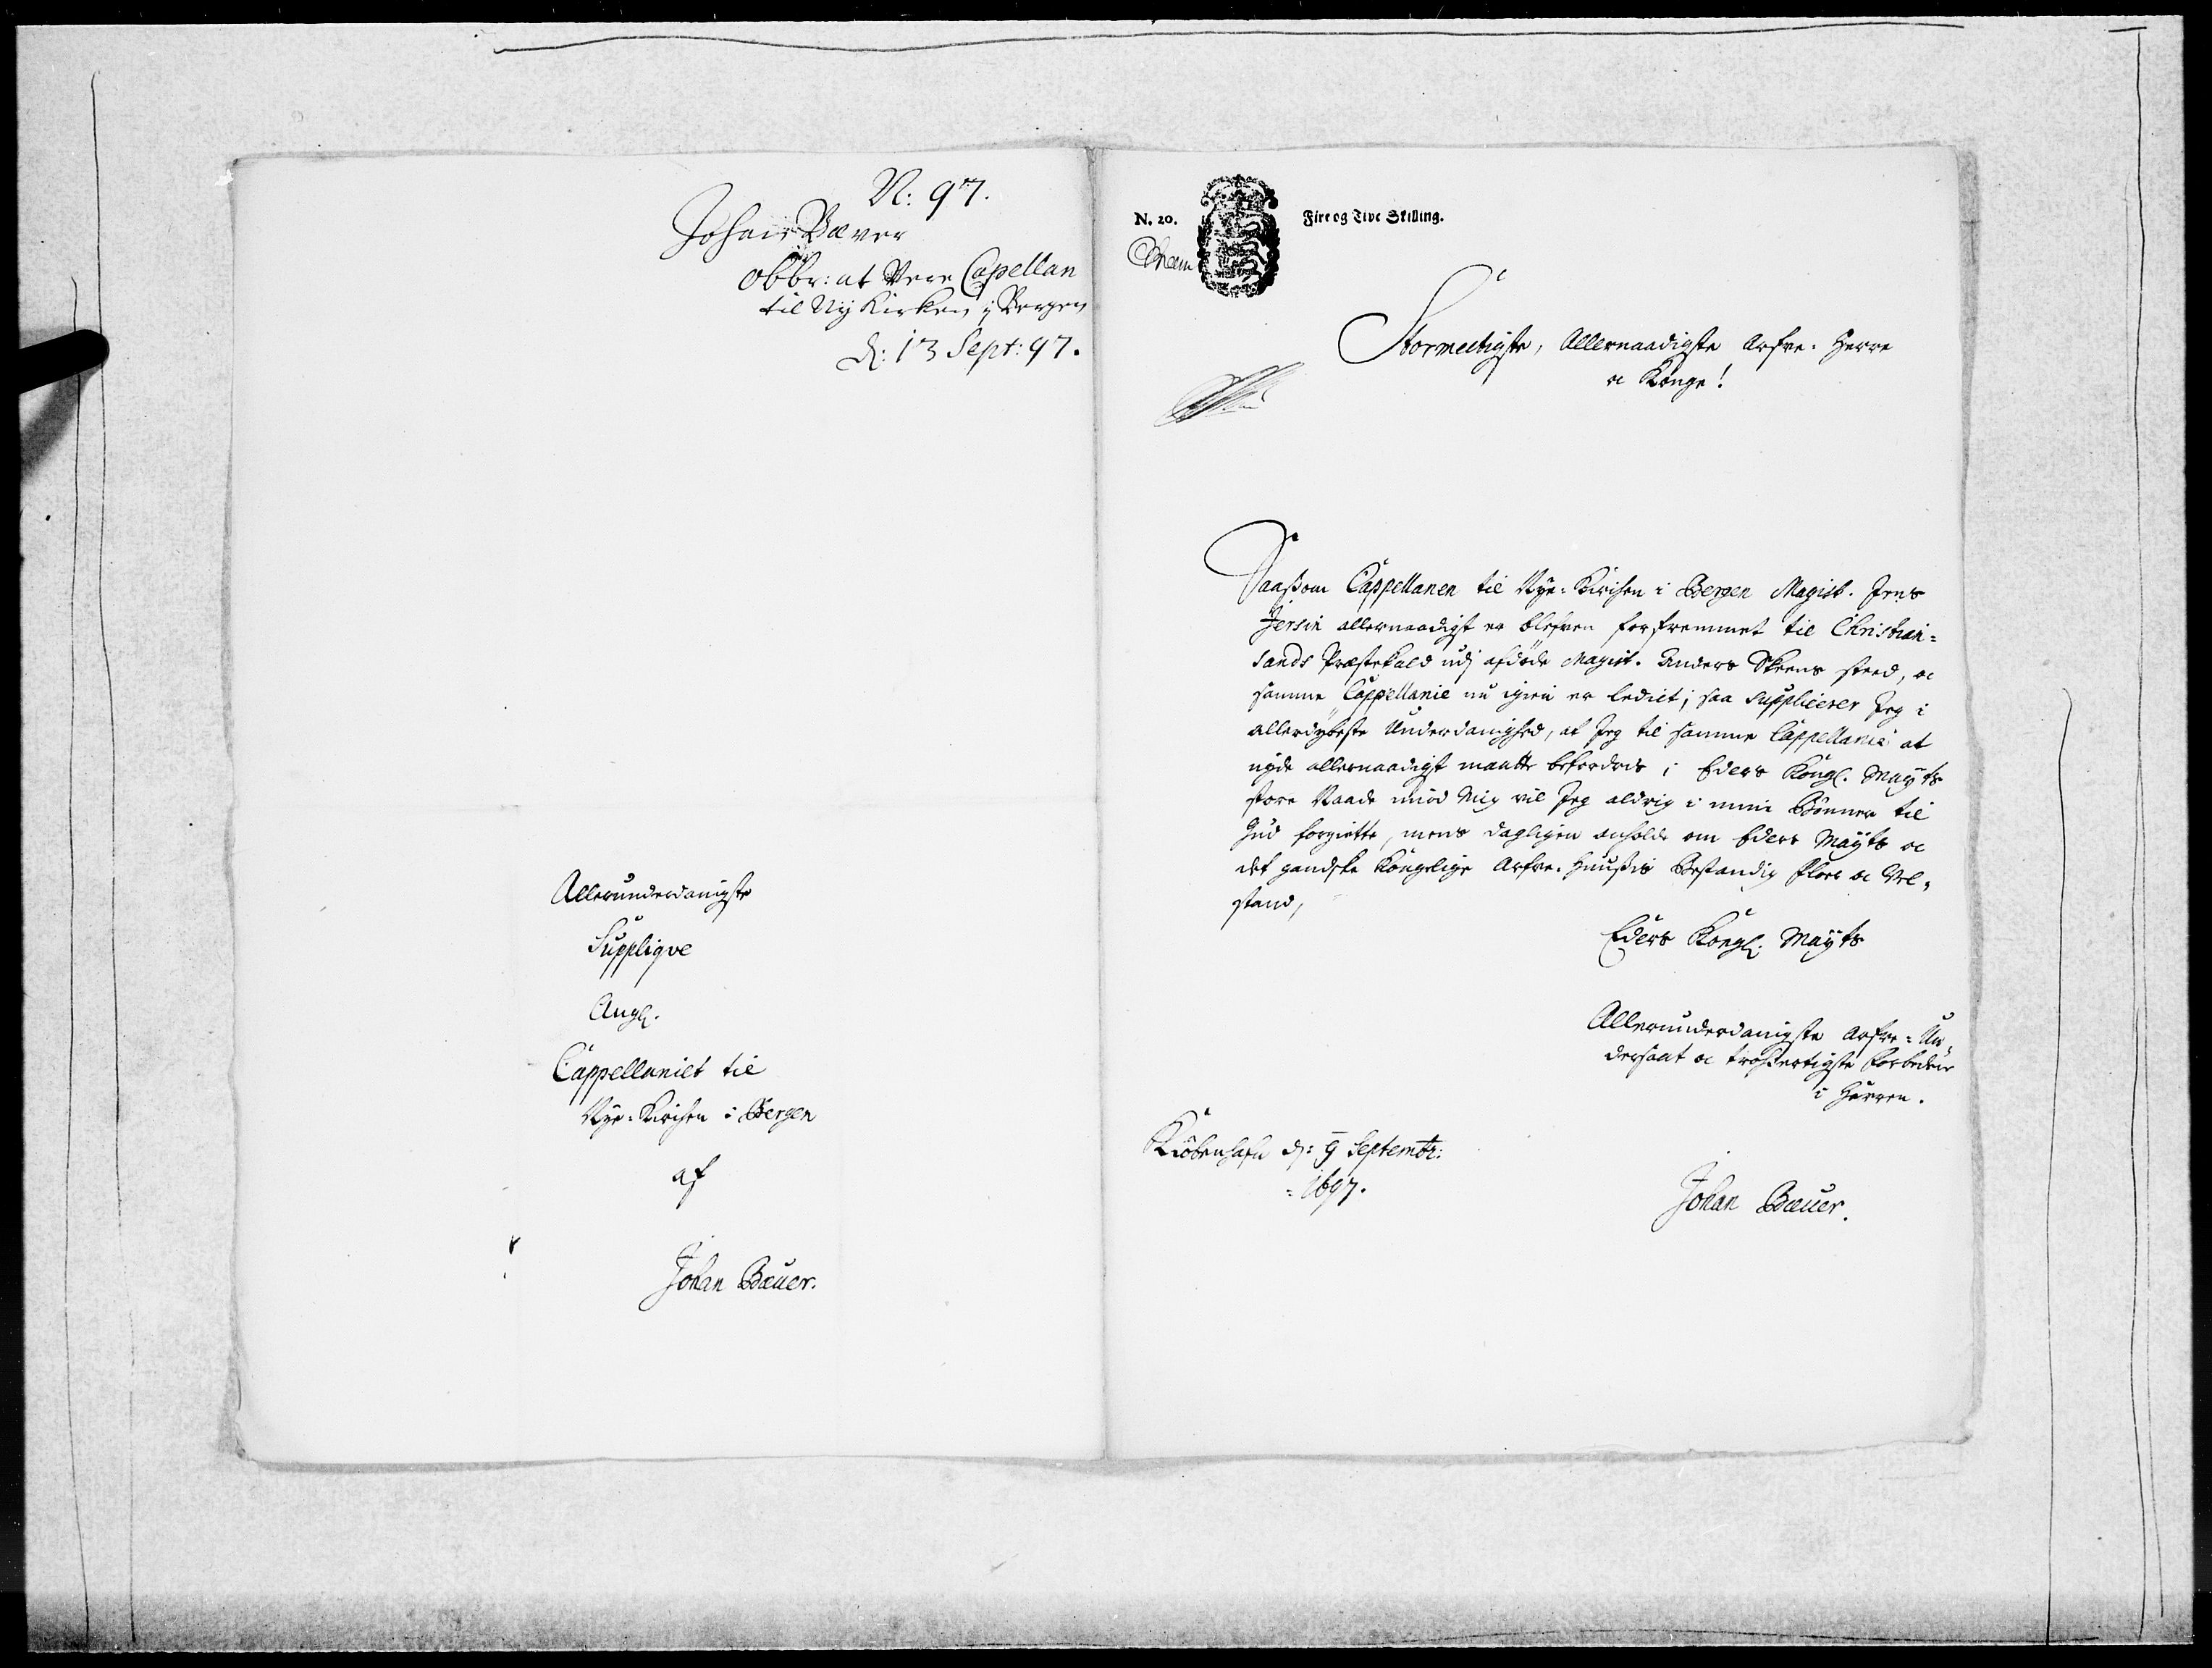 N: 97.
Johan Bæver
obbr: at Vere Capellan
til Ny Kirken j Bergen
d: 13 Sept: 97.
Allerunderdanigste
Supplique
Angl.
Cappellaniet til
Nye-Kirchen i Bergen
af
Johan Bæuer.
N. 20. Fire og Tive Skilling.
Stormectigste, Allernaadigste Arfve-Herre
oc Konge!
Saasom Cappellanen til Nye-Kirchen i Bergen Magist. Jens
Jersin allernaadigst er blefven forfremmet til Christian-
sands Præstekald udj afdøde Magist. Anders Skeens sted, oc
samme Cappellanie nu igien er ledict; saa supplicerer Jeg i
allerdybeste Underdanighed, at Jeg til samme Cappellanie at
nyde allernaadigst maatte befordris; Eders Kongl. Mayts
store Naade imod Mig vil Jeg aldrig i mine Bønner til
Gud forgiette, mens dagligen anholde om Eders Mayts oc
det gandske Kongelige Arfve-Huusis Bestandig Floer oc Vel-
stand,
Eders Kongl. Mayts
Allerunderdanigste Arfve-Un-
dersaat oc Forbedere
i Herren.
Kiöbenhafn d: 9 Septembr:
1697.
Johan Bæuer.